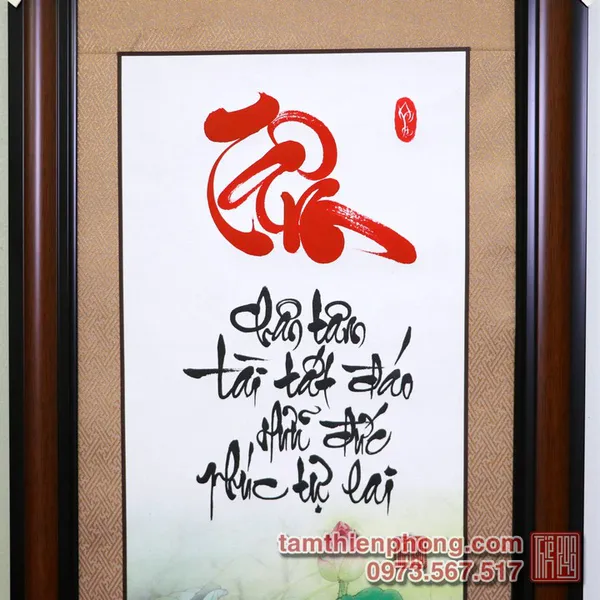 Chân tâm
tài tất đáo
Hữu đức
phúc tự lai
tamthienphong.com
0973.567.517